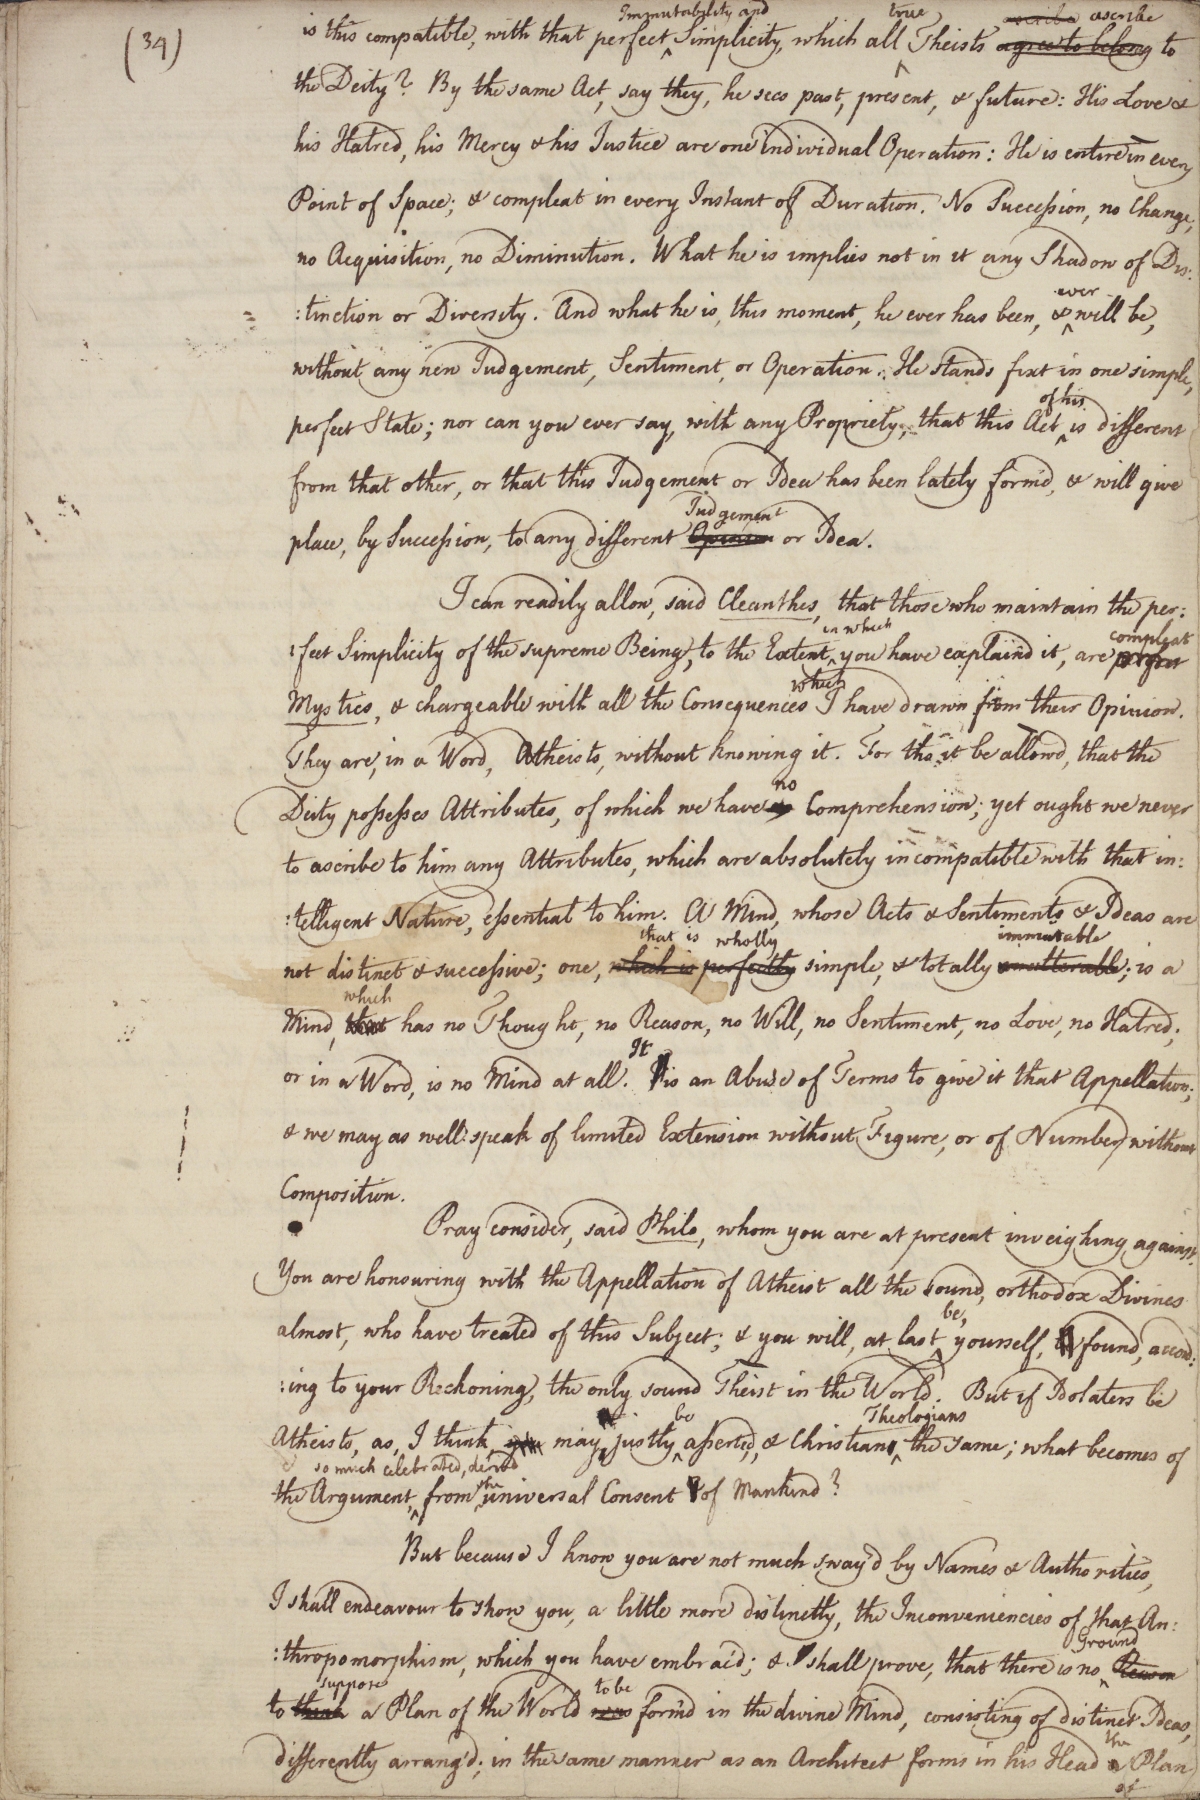 (34)
is this compatible, with that perfect Immutability and Simplicity, which all true Theists ascribe ascribe agree to belong to
the Deity? By the same Act, say they, he sees past, present, & future: His Love &
his Hatred, his Mercy & his Justice are one individual Operation: He is entire in every
Point of Space; & compleat in every Instant of Duration. No Succession, no Change,
no Acquisition, no Diminution. What he is implies not in it any Shadow of Dis:
:tinction or Diversity. And what he is, this moment, he ever has been, & ever will be,
without any new Judgement, Sentiment, or Operation. He stands fixt in one simple,
perfect State; nor can you ever say, with any Propriety, that this Act of his is different
from that other, or that this Judgement or Idea has been lately form'd, & will give
place, by Succession, to any different Judgement Opinion or Idea.
I can readily allow, said Cleanthes, that those who maintain the per:
:fect Simplicity of the supreme Being, to the Extent in which you have explain'd it, are compleat perfect
Mystics, & chargeable with all the Consequences which I have drawn from their Opinion.
They are, in a Word, Atheists, without knowing it. For tho' it be allow'd, that the
Deity possesses Attributes, of which we have no Comprehension; yet ought we never
to ascribe to him any Attributes, which are absolutely incompatible with that in:
:telligent Nature, essential to him. A Mind, whose Acts & Sentiments & Ideas are
not distinct & successive; one, that is wholly which is perfectly simple, & totally immutable unalterable; is a
Mind, which that has no Thought, no Reason, no Will, no Sentiment, no Love, no Hatred;
or in a Word, is no Mind at all. It is an Abuse of Terms to give it that Appellation;
& we may as well speak of limited Extension without Figure, or of Number without
Composition.
Pray consider, said Philo, whom you are at present inveighing against.
You are honouring with the Appellation of Atheist all the sound, orthodox Divines
almost, who have treated of this Subject; & you will, at last be, yourself, found, accord:
:ing to your Reckoning, the only sound Theist in the World. But if Idolaters be
Atheists, as, I think, may justly be asserted, & Christian Theologians the same; what becomes of
the Argument, so much celebrated, deriv'd from the universal Consent of Mankind?
But because I know you are not much sway'd by Names & Authorities,
I shall endeavour to show you, a little more distinctly, the Inconveniencies of that An:
:thropomorphism, which you have embrac'd; & shall prove, that there is no Ground Reason
to suppose think a Plan of the World to be was form'd in the divine Mind, consisting of distinct Ideas,
differently arrang'd; in the same manner as an Architect forms in his Head the a Plan
of